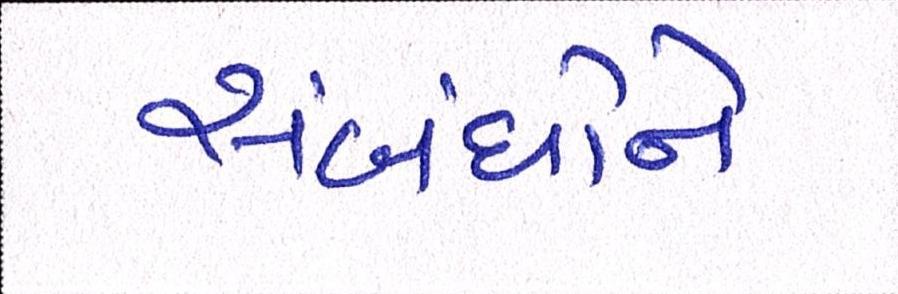 સંબંધોને